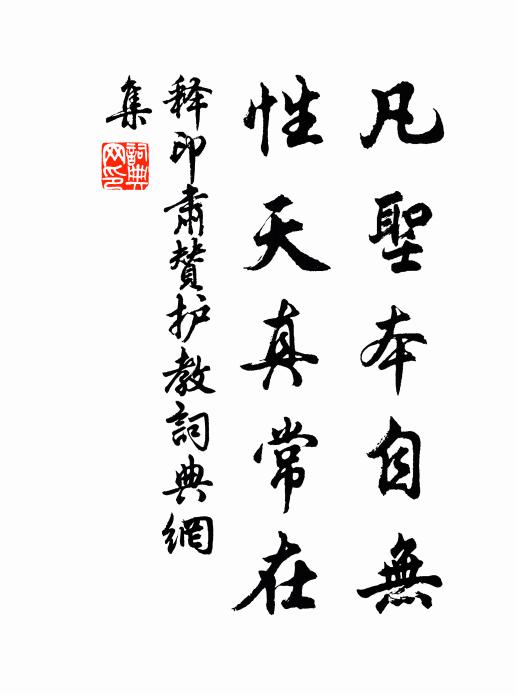 凡聖本自無
性天真常在
释印肅贊护教詞典網
集
詞典
网印